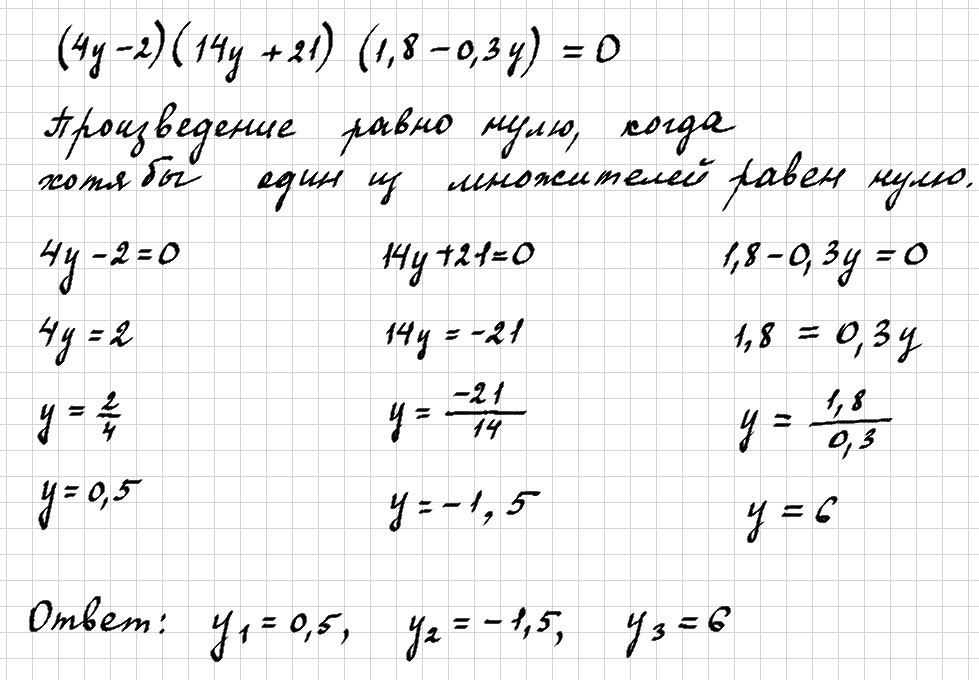 (4y-2)(14y+21) (1,8-0,3y) = 0
Произведение равно нулю, когда
хотя бы один из множителей равен нулю.
4y-2=0 14y+21=0 1,8-0,3y=0
4y=2 14y=-21 1,8=0,3y
y=2/4 y=-21/14 y=1,8/0,3
y=0,5 y=-1,5 y=6
Ответ: y₁=0,5, y₂=-1,5, y₃=6